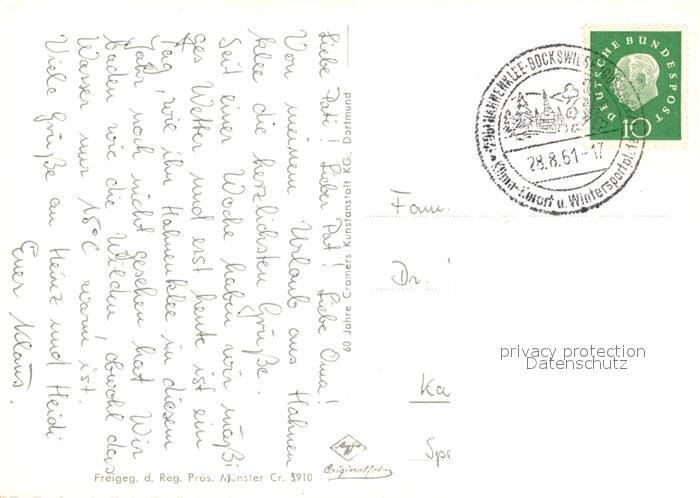 Liebe Pati! Lieber Pat! Liebe Oma!
Von meinem Urlaub aus Hahnen
klee die herzlichsten Grüße.
Seit einer Woche haben wir mäßi
ges Wetter und erst heute ist ein
Tag, wie ihn Hahnenklee in diesem
Jahr noch nicht gesehen hat. Wir
baden wie die Wilden, obwohl das
Wasser nur 15°C warm ist.
Viele Grüße an Heinz und Heidi
Euer Klaus.
60 Jahre Cramers Kunstanstalt KG, Dortmund
Freigeg. d. Reg. Präs. Münster Cr. 5910
Agfa
Originalfoto
HAHNENKLEE-BOCKSWIESE
28.8.61-17
Klima-Kurort u. Wintersportplatz
DEUTSCHE BUNDESPOST
10
Fam.
Dr.
Ka
Spe
privacy protection
Datenschutz